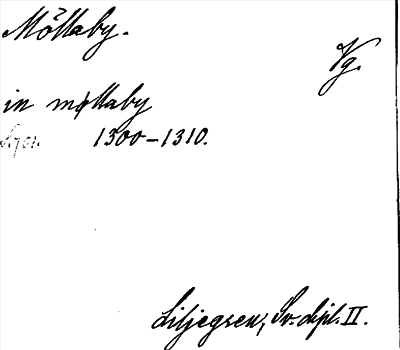 Möllaby.
Vg.
in møllaby
S. 701. 1300-1310.
Liljegren, Sv. dipl. II.